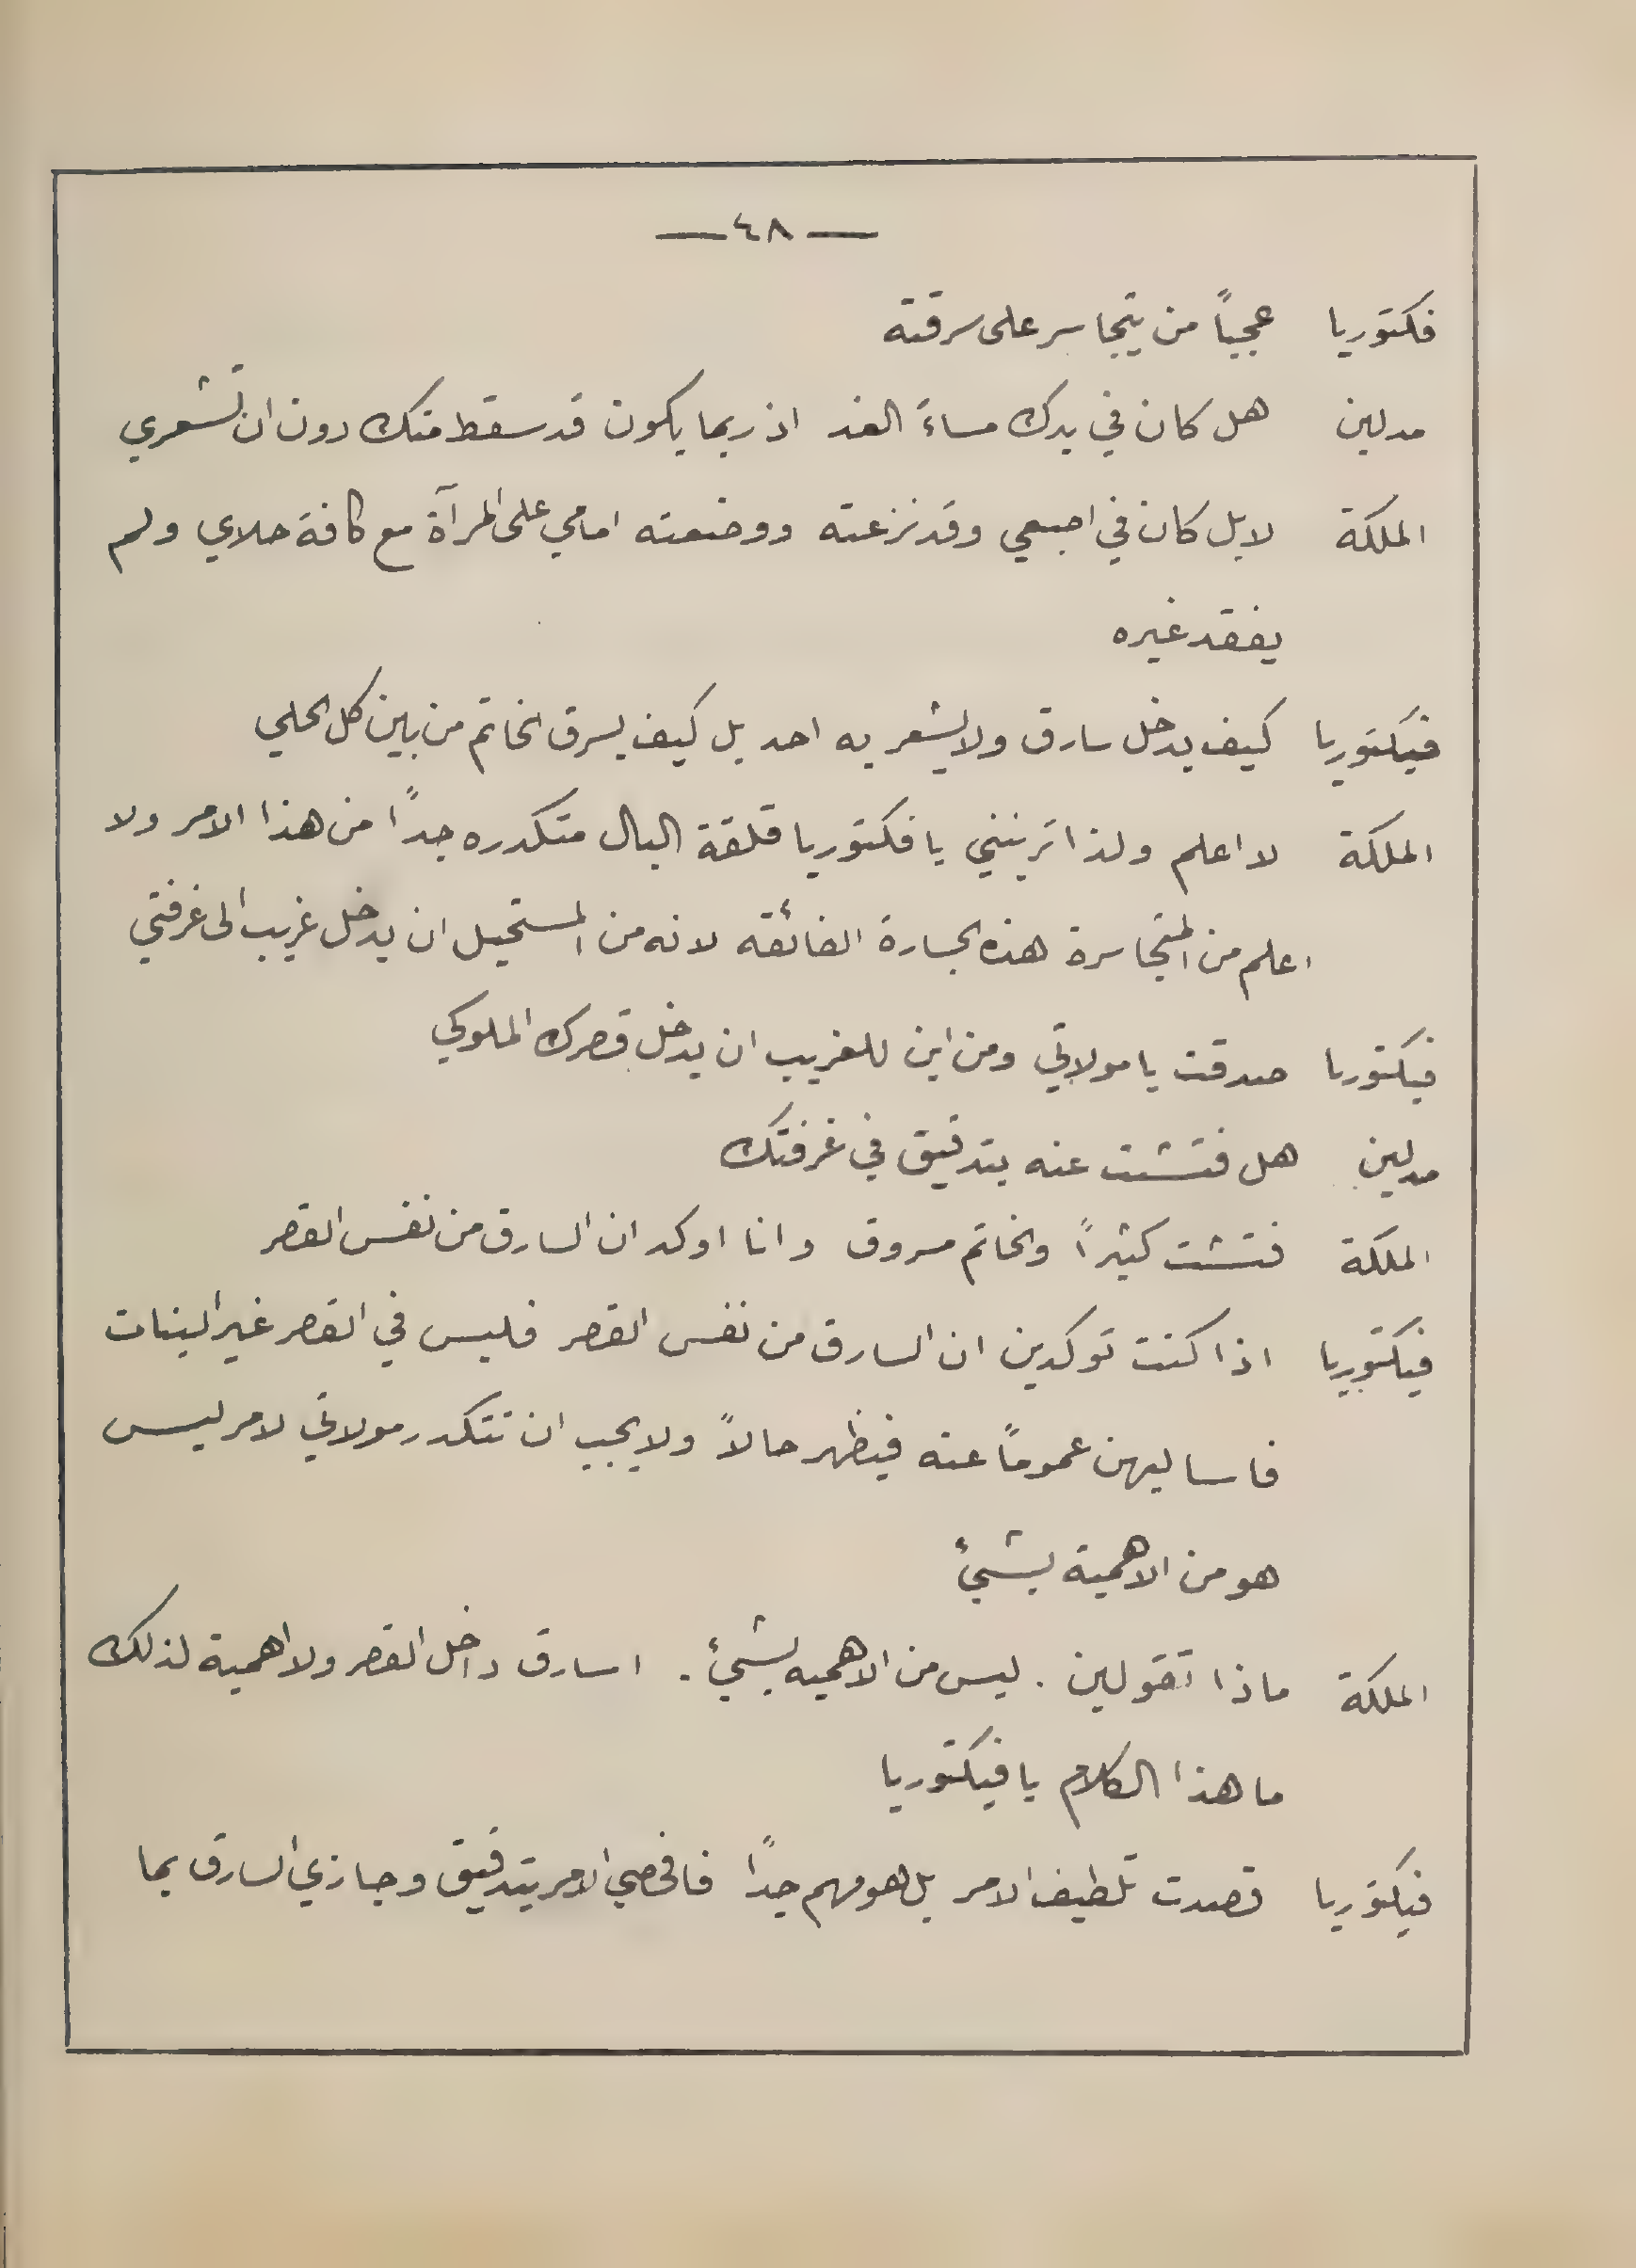 — ٤٨ —
فكتوريا عجباً من يتجاسر على سرقته
مدلين هل كان في يدك مساءَ الغد اذ ربما يكون قد سقط منك دون ان تشعري
الملكة لا بل كان في اصبعي وقد نزعته ووضعته امامي على المرآة مع كافة حلاي ولم
يفقد غيره
فيكتوريا كيف يدخل سارق ولا يشعر به احد بل كيف يسرق الخاتم من بين كل الحلي
الملكة لا اعلم ولذا ترينني يا فكتوريا قلقة البال متكدره جداً من هذا الامر ولا
اعلم من المتجاسرة هذه الجسارة الفائقه لانه من المستحيل ان يدخل غريب الى غرفتي
فيكتوريا صدقت يا مولاتي ومن اين للغريب ان يدخل قصرك الملوكي
مدلين هل فتشت عنه بتدقيق في غرفتك
الملكة فتشت كثيراً والخاتم مسروق وانا اوكد ان السارق من نفس القصر
فيكتوريا اذا كنت توكدين ان السارق من نفس القصر فليس في القصر غير البنات
فاساليهن عموماً عنه فيظهر حالاً ولا يجب ان تتكدر مولاتي لامر ليس
هو من الاهمية بشيءٍ
الملكة ماذا تقولين . ليس من الاهميه بشيءٍ . اسارق داخل القصر ولا اهمية لذلك
ما هذا الكلام يا فيكتوريا
فيكتوريا قصدت تلطيف الامر بل هو مهم جداً فافحصي الامر بتدقيق وجازي السارق بما